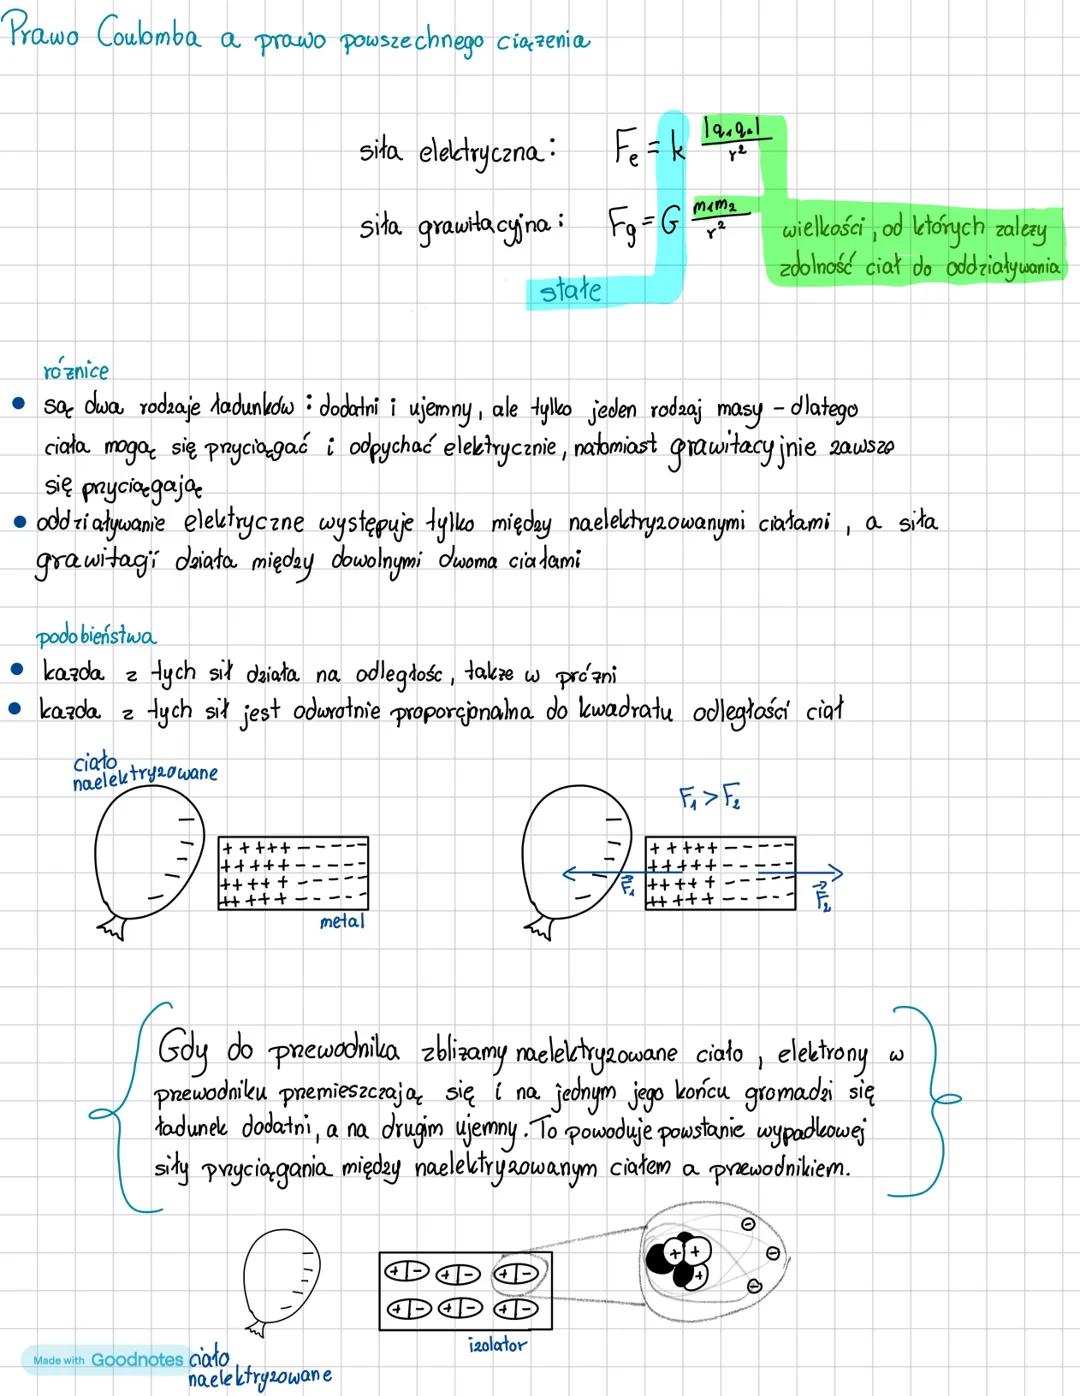 Prawo Coulomba a prawo powszechnego ciążenia
siła elektryczna: Fe = k |q₁q₂| / r²
siła grawitacyjna: Fg = G m₁m₂ / r²
wielkości, od których zależy
zdolność ciał do oddziaływania
stałe
różnice
• są dwa rodzaje ładunków: dodatni i ujemny, ale tylko jeden rodzaj masy – dlatego
ciała mogą się przyciągać i odpychać elektrycznie, natomiast grawitacyjnie zawsze
się przyciągają
• oddziaływanie elektryczne występuje tylko między naelektryzowanymi ciałami, a siła
grawitacji działa między dowolnymi dwoma ciałami
podobieństwa
• każda z tych sił działa na odległość, także w próżni
• każda z tych sił jest odwrotnie proporcjonalna do kwadratu odległości ciał
ciało
naelektryzowane
+ + + + + - - - - -
+ + + + + - - - - -
+ + + + + - - - - -
+ + + + + - - - - -
metal
F₁ > F₂
+ + + + + - - - - -
+ + + + + - - - - -
+ + + + + - - - - -
+ + + + + - - - - -
F₁
F₂
Gdy do przewodnika zbliżamy naelektryzowane ciało, elektrony w
przewodniku przemieszczają się i na jednym jego końcu gromadzi się
ładunek dodatni, a na drugim ujemny. To powoduje powstanie wypadkowej
siły przyciągania między naelektryzowanym ciałem a przewodnikiem.
+ - + - + -
+ - + - + -
izolator
+ + +
- - -
Made with Goodnotes
ciało
naelektryzowane